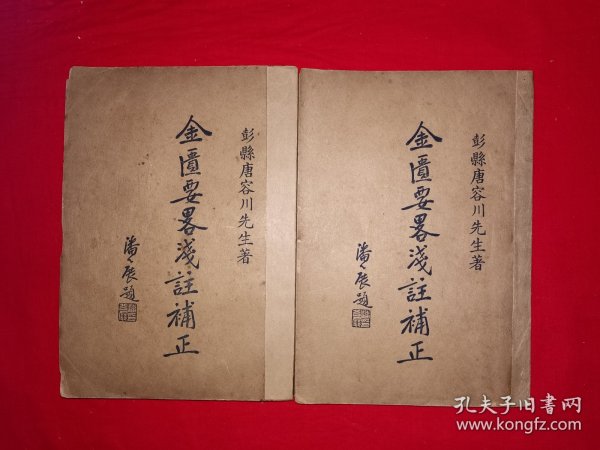 彭縣唐容川先生著
金匱要畧淺註補正
潘公展題
彭縣唐容川先生著
金匱要畧淺註補正
潘公展題
孔夫子旧書网
www.kongfz.com